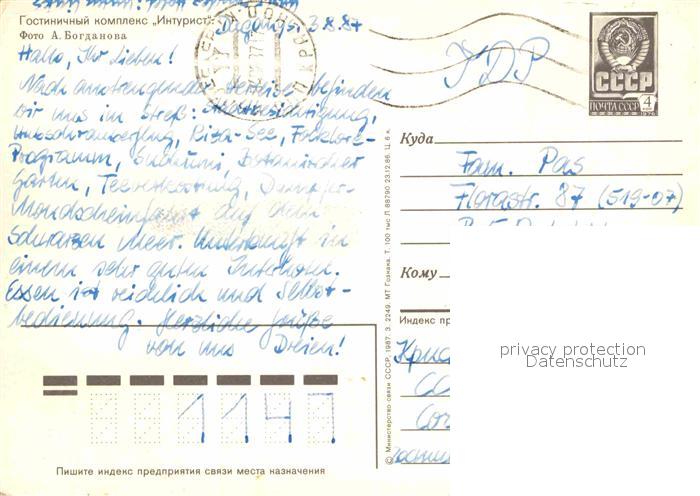 Гостиничный комплекс „Интурист".
Фото А. Богданова
3.8.87
Hallo, Ihr Lieben!
Nach anstrengender befinden
wir uns im Streß: Stadtbesichtigung,
Riza-See, Folklore-
Programm, Suchumi, Botanischer
Garten, Dampfer-
Mondscheinfahrt auf dem
Schwarzen Meer. Unterkunft in
einem sehr guten
Essen ist reichlich und Selbst-
bedienung. Herzliche Grüße
von uns Dreien!
ГДР
СССР
ПОЧТА СССР 4
1976
Куда
Fam. Pas
Florastr. 87 (519-07)
Кому
Индекс пр
privacy protection
Datenschutz
1147
Пишите индекс предприятия связи места назначения
© Министерство связи СССР, 1987. З. 2249. МТ Гознака. Т. 100 тыс Л 88790 23.12.86. Ц. 6 к.